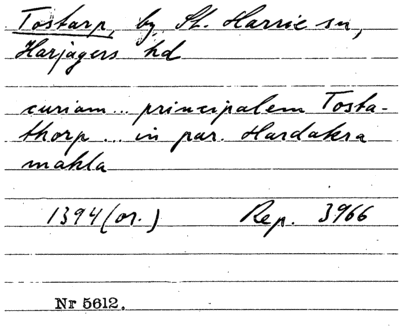 Tostarp, by St. Harrie sn,
Harjagers hd
curiam... principalem Tosta-
thorp... in par. Hardakra
makla
1394 (or.) Rep. 3966
Nr 5612.